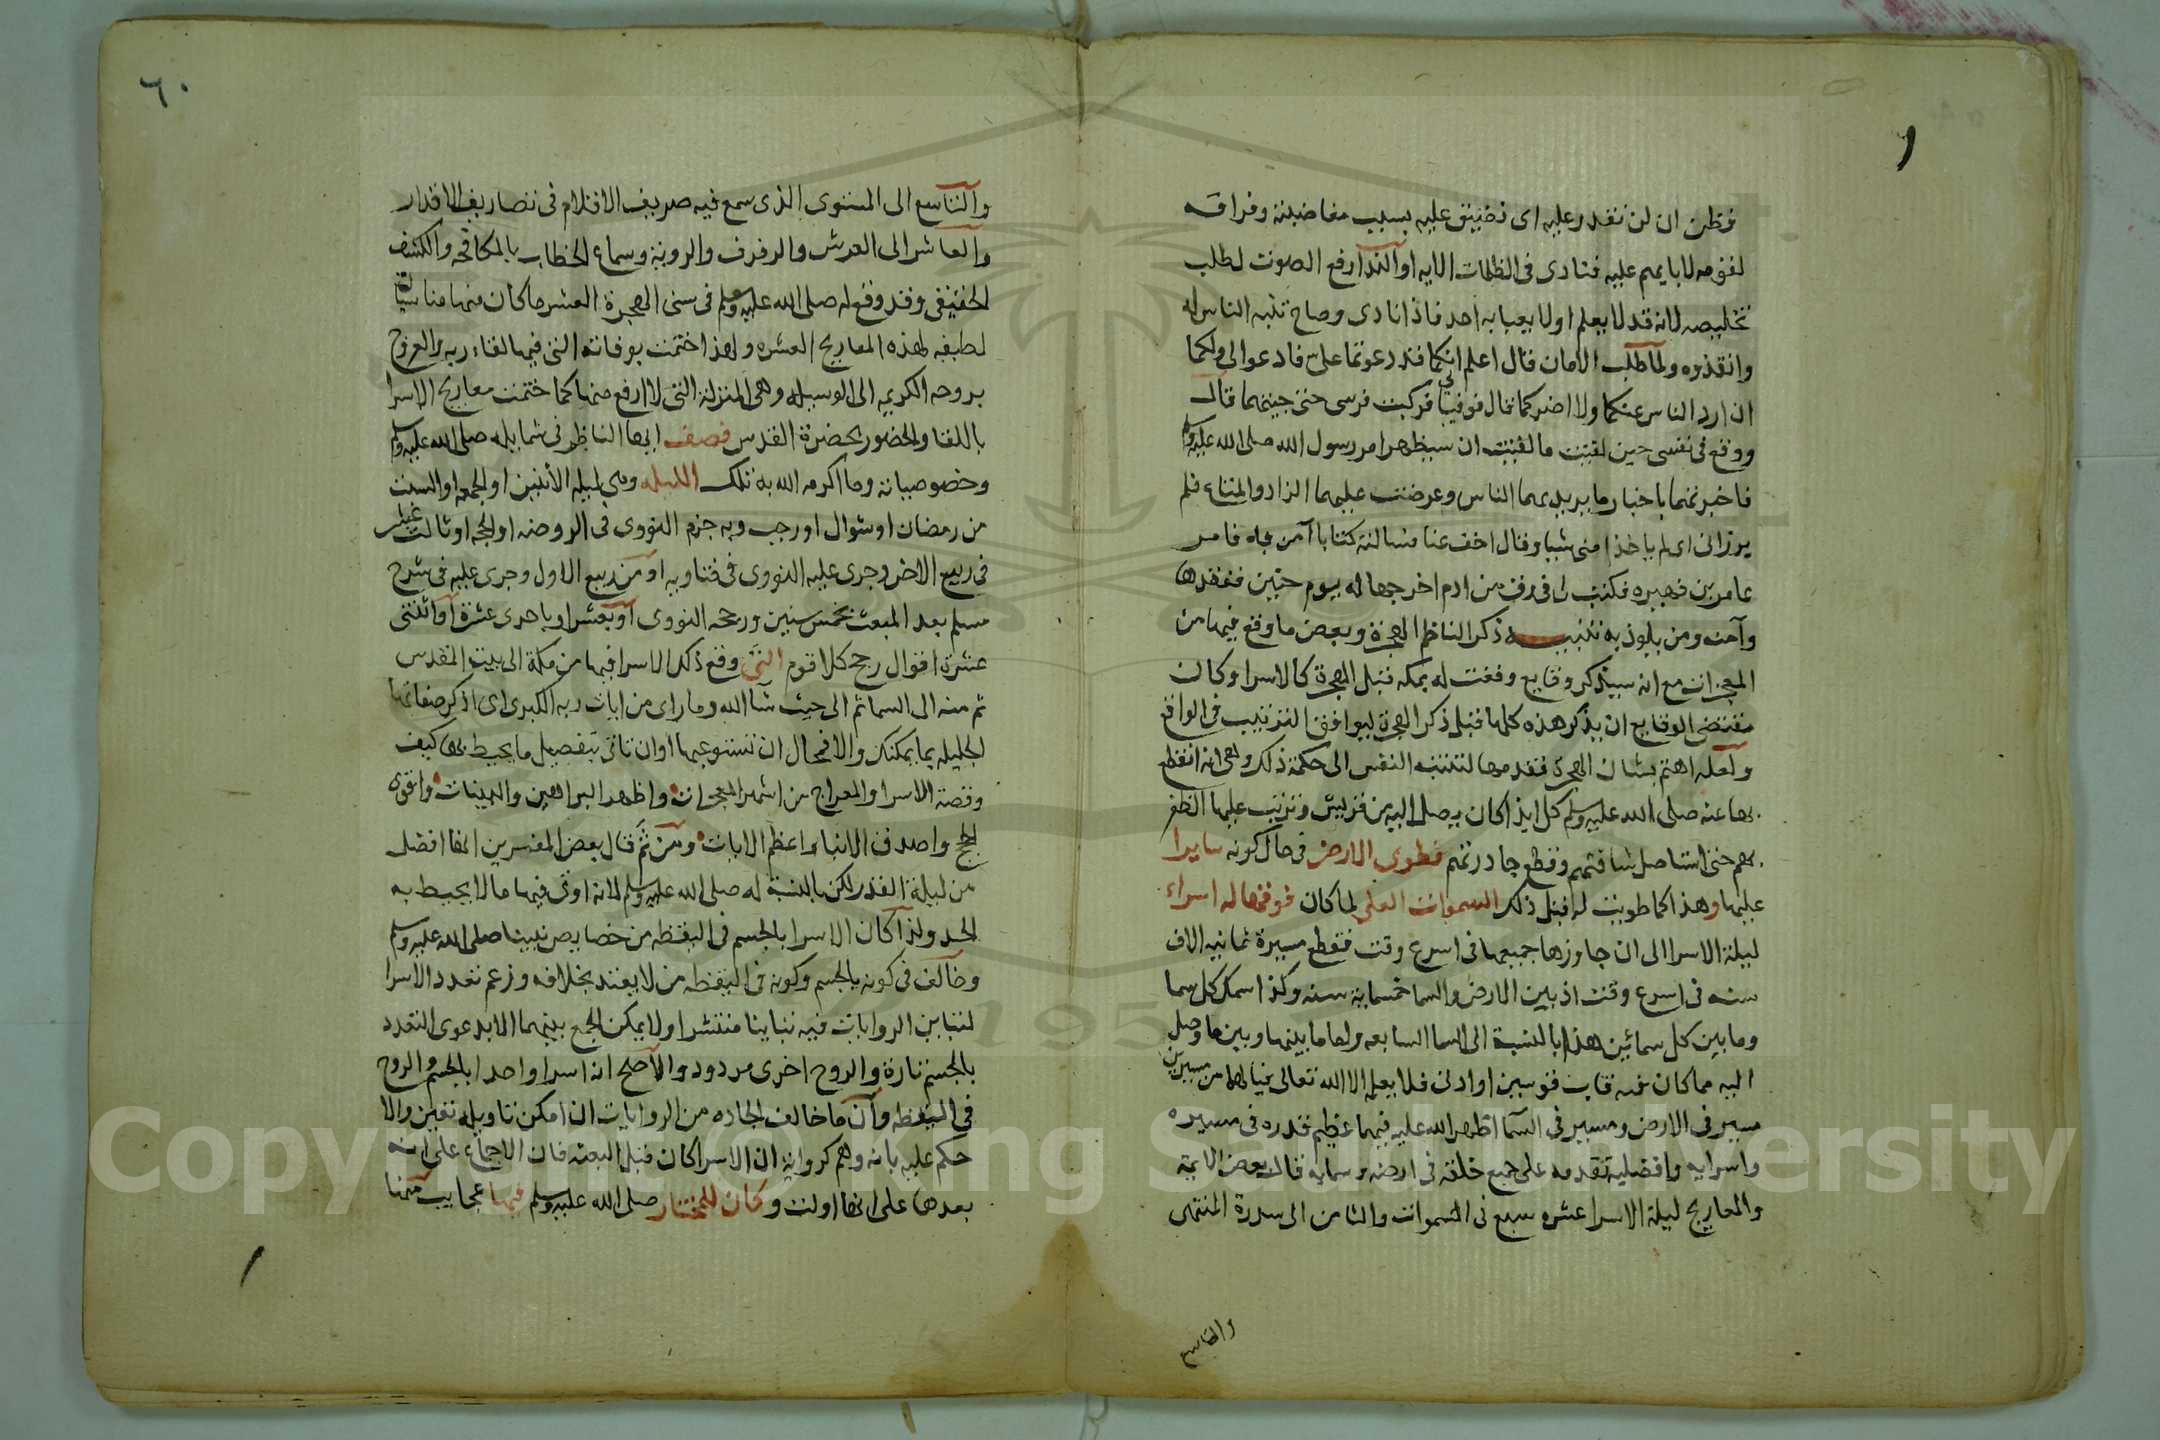 فظن ان لن نقدر عليه اى نضيق عليه بسبب مغاضبته وفراقه
لقومه لا بايهم عليه فنادى فى الظلمات الايه او الندا رفع الصوت لطلب
تخليصه لانه قد لا يعلم او لا يعبا به احد فاذا نادى وصاح تنبه الناس له
وانقذوه ولما طلب الامان قال اعلم انكما قد دعوتما على فادعوا لى ولكما
ان ارد الناس عنكما ولا اضركما قال فوقفا لى فركبت فرسى حتى جيتهما قال
ووقع فى نفسى حين لقيت ما لقيت ان سيظهر امر رسول الله صلى الله عليه وسلم
فاخبرتهما باخبار ما يريد بهما الناس وعرضت عليهما الزاد والمتاع فلم
يرزانى اى لم ياخذا منى شيا وقال اخف عنا فسالته كتابا آمن به فامر
عامر بن فهيره فكتب لى فى رق من ادم اخرجها له يوم حنين فنفذها
وآمنه ومن يلوذ به تنبيه ذكر الناظم الهجرة وبعض ما وقع فيها من
المعجزات مع انه سيذكر وقايع وقعت له بمكه قبل الهجرة كالاسرا وكان
مقتضى الوقايع ان يذكر هذه كلها قبل ذكر الهجرة ليوافق الترتيب فى الواقع
ولعله اهتم بشان الهجرة فقدمها لتتنبه النفس الى حكمة ذلك وهى انه انقطع
بها عنه صلى الله عليه وسلم كل ايذا كان يصل اليه من قريش وترتب عليها الظفر
بهم حتى استاصل شافتهم وقطع جادرتهم فطوى الارض فى حال كونه سايرا
عليها وهذا كما طويت له قبل ذلك السموات العلى لما كان فوقها له اسراء
ليلة الاسرا الى ان جاوزها جميعها فى اسرع وقت فقطع مسيرة ثمانيه الاف
سنه فى اسرع وقت اذ بين الارض والسما خمسماية سنه وكذا سمك كل سما
وما بين كل سمائين هذا بالنسبة الى السما السابعه واما ما بينها وبين ما وصل
اليه مما كان فيه قاب قوسين او ادنى فلا يعلمه الا الله تعالى فيا لها من مسيرين
مسير فى الارض ومسير فى السما اظهر الله عليه فيهما عظيم قدره فى مسيره
واسرايه وافضلية تقدمه على جميع خلقه فى ارضه وسمايه قال بعض الايمة
والمعاريج ليلة الاسرا عشره سبع فى السموات والثامن الى سدرة المنتهى
والتاسع
٦٠
والتاسع الى المستوى الذى سمع فيه صريف الاقلام فى تصاريف الاقدار
والعاشر الى العرش والرفرف والروية وسماع الخطاب بالمكافحه والكشف
الحقيقى وقد وقع له صلى الله عليه وسلم فى سنى الهجرة العشر ما كان منها مناسبات
لطيفه لهذه المعاريج العشره ولهذا ختمت بوفاته التى فيها لقاء ربه والعروج
بروحه الكريم الى الوسيله وهى المنزلة التى لا ارفع منها كما ختمت معاريج الاسرا
باللقا والحضور بحضرة القدس فصف ايها الناظر فى شمايله صلى الله عليه وسلم
وخصوصياته وما اكرمه الله به تلك الليله وهى ليلة الاثنين او الجمعه او السبت
من رمضان او شوال او رجب وبه جزم النووى فى الروضه او الحجه او ثالث عشر
فى ربيع الاخر وجرى عليه النووى فى فتاويه او من ربيع الاول وجرى عليه فى شرح
مسلم بعد المبعث بخمس سنين ورجحه النووى او بعشر او باحدى عشرة او اثنتى
عشرة اقوال رجح كلا قوم التى وقع ذلك الاسرا فيها من مكة الى بيت المقدس
ثم منه الى السما ثم الى حيث شا الله وما راى من ايات ربه الكبرى اى اذكر صفاتها
الجليله بما يمكنك والا فمحال ان تستوعبها او ان تاتى بتفصيل ما يحيط بها كيف
وقصة الاسرا والمعراج من اشهر المعجزات واظهر البراهين والبينات واقوى
الحجج واصدق الانبا واعظم الايات ومن ثَم قال بعض المفسرين انها افضل
من ليلة القدر لكن بالنسبة له صلى الله عليه وسلم لانه اوتى فيها ما لا يحيط به
الحد ولذا كان الاسرا بالجسم فى اليقظه من خصايص نبينا صلى الله عليه وسلم
وخالف فى كونه بالجسم وكونه فى اليقظه من لا يعتد بخلافه وزعم تعدد الاسرا
لتباين الروايات فيه تباينا منتشرا ولا يمكن الجمع بينهما الا بدعوى التعدد
بالجسم تارة والروح اخرى مردود والاصح انه اسرا واحد بالجسم والروح
فى اليقظه وان ما خالف الجاده من الروايات ان امكن تاويله تعين والا
حكم عليه بانه وهم كرواية ان الاسرا كان قبل البعثه فان الاجماع على انه
بعدها على انها اولت وكان للمختار صلى الله عليه وسلم فيها عجايب منها
Copyright © King Saud University
195